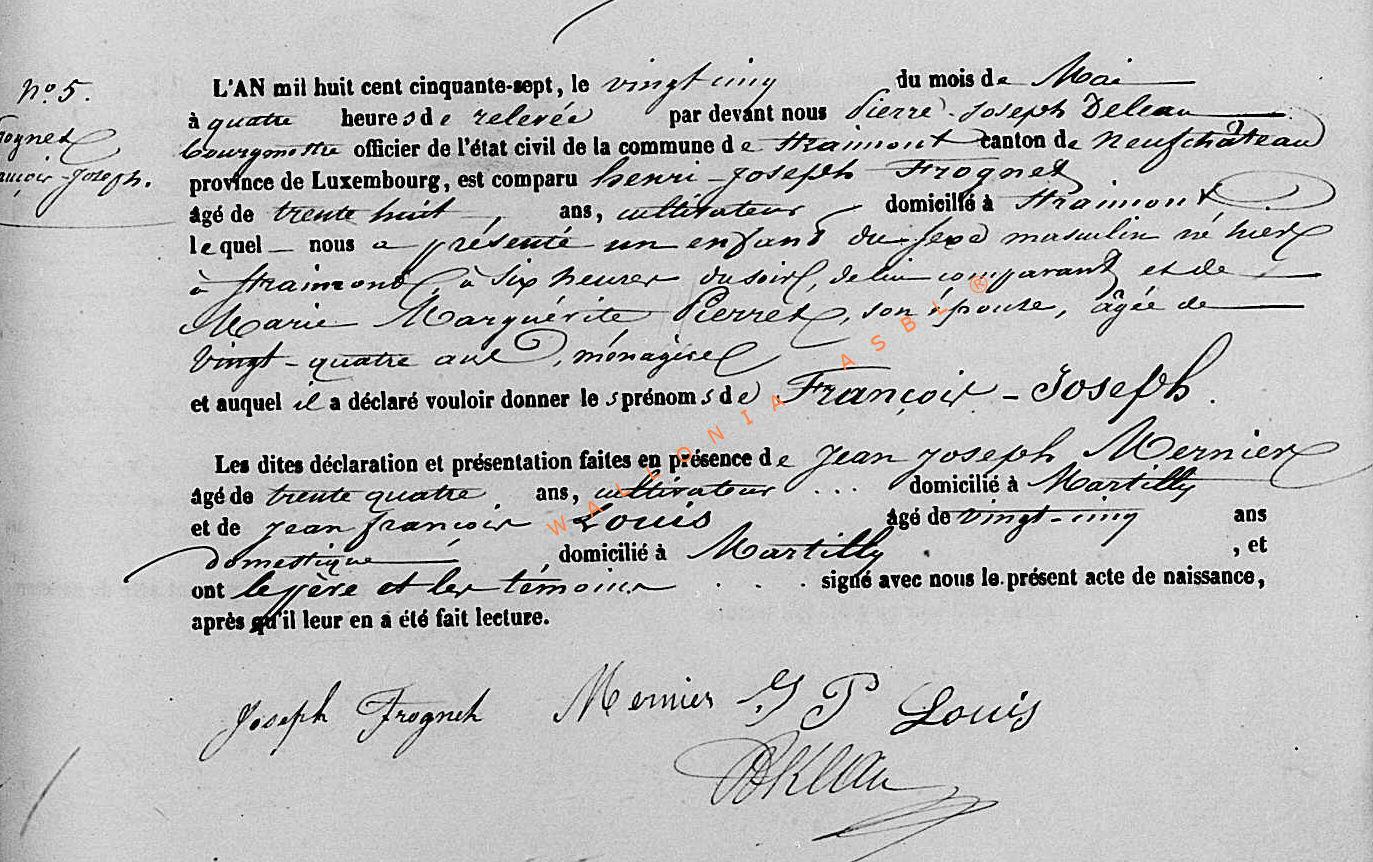 No 5.
Frognet
François-Joseph.
L'AN mil huit cent cinquante-sept, le vingt cinq du mois de Mai
à quatre heures de relevée par devant nous Pierre-Joseph Deleau
bourgmestre officier de l'état civil de la commune de Straimont canton de Neufchâteau
province de Luxembourg, est comparu henri-Joseph Frognet
âgé de trente huit ans, cultivateur domicilié à Straimont
lequel nous a présenté un enfant du sexe masculin né hier
à Straimont, à six heures du soir, de lui comparant et de
Marie Marguérite Pierret, son épouse, âgée de
Vingt-quatre ans, ménagère
et auquel il a déclaré vouloir donner les prénoms de François-Joseph.
Les dites déclaration et présentation faites en présence de Jean Joseph Mernier
âgé de trente quatre ans, cultivateur ... domicilié à Martilly
et de jean françois Louis âgé de vingt-cinq ans
domestique, domicilié à Martilly . , et
ont le père et les témoins . . . signé avec nous le présent acte de naissance,
après qu'il leur en a été fait lecture.
Joseph Frognet Mernier J P Louis
WALLONIA ASBL ®